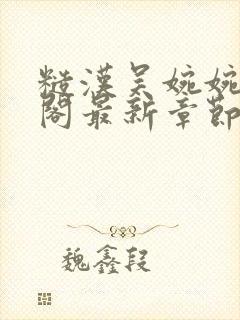 糙漢吴婉婉
閣最新章節
魏鑫段